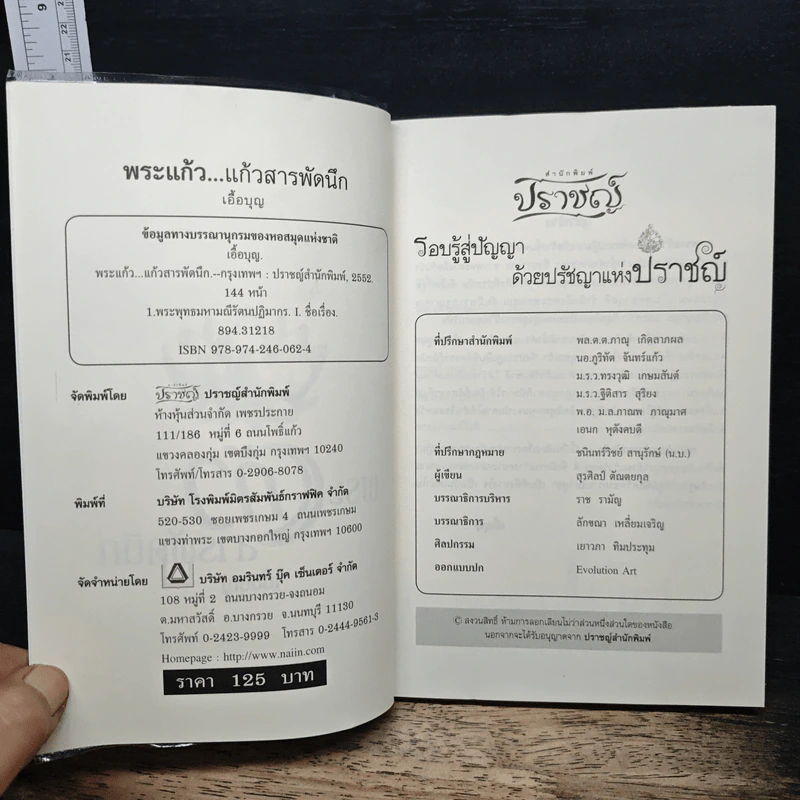 พระแก้ว...แก้วสารพัดนึก
เอื้อบุญ
ข้อมูลทางบรรณานุกรมของหอสมุดแห่งชาติ
เอื้อบุญ.
พระแก้ว...แก้วสารพัดนึก.--กรุงเทพฯ : ปราชญ์สำนักพิมพ์, 2552.
144 หน้า
1.พระพุทธมหามณีรัตนปฏิมากร. I. ชื่อเรื่อง.
894.31218
ISBN 978-974-246-062-4
จัดพิมพ์โดย ปราชญ์ ปราชญ์สำนักพิมพ์
ห้างหุ้นส่วนจำกัด เพชรประกาย
111/186 หมู่ที่ 6 ถนนโพธิ์แก้ว
แขวงคลองกุ่ม เขตบึงกุ่ม กรุงเทพฯ 10240
โทรศัพท์/โทรสาร 0-2906-8078
พิมพ์ที่ บริษัท โรงพิมพ์มิตรสัมพันธ์กราฟฟิค จำกัด
520-530 ซอยเพชรเกษม 4 ถนนเพชรเกษม
แขวงท่าพระ เขตบางกอกใหญ่ กรุงเทพฯ 10600
จัดจำหน่ายโดย บริษัท อมรินทร์ บุ๊ค เซ็นเตอร์ จำกัด
108 หมู่ที่ 2 ถนนบางกรวย-จงถนอม
ต.มหาสวัสดิ์ อ.บางกรวย จ.นนทบุรี 11130
โทรศัพท์ 0-2423-9999 โทรสาร 0-2444-9561-3
Homepage : http://www.naiin.com
ราคา 125 บาท
สำนักพิมพ์
ปราชญ์
รอบรู้สู่ปัญญา
ด้วยปรัชญาแห่งปราชญ์
ที่ปรึกษาสำนักพิมพ์ พล.ต.ต.ภาณุ เกิดลาภผล
นอ.ภูริทัต จันทร์แก้ว
ม.ร.ว.ทรงวุฒิ เกษมสันต์
ม.ร.ว.ฐิติสาร สุริยง
พ.อ. ม.ล.ภาณพ ภาณุมาศ
เอนก หุตังคบดี
ที่ปรึกษากฎหมาย ชนินทร์วิชย์ สานุรักษ์ (น.บ.)
ผู้เขียน สุรศิลป์ ตัณตยกุล
บรรณาธิการบริหาร ราช รามัญ
บรรณาธิการ ลักขณา เหลี่ยมเจริญ
ศิลปกรรม เยาวภา ทิมประทุม
ออกแบบปก Evolution Art
© สงวนสิทธิ์ ห้ามการลอกเลียนไม่ว่าส่วนหนึ่งส่วนใดของหนังสือ
นอกจากจะได้รับอนุญาตจาก ปราชญ์สำนักพิมพ์